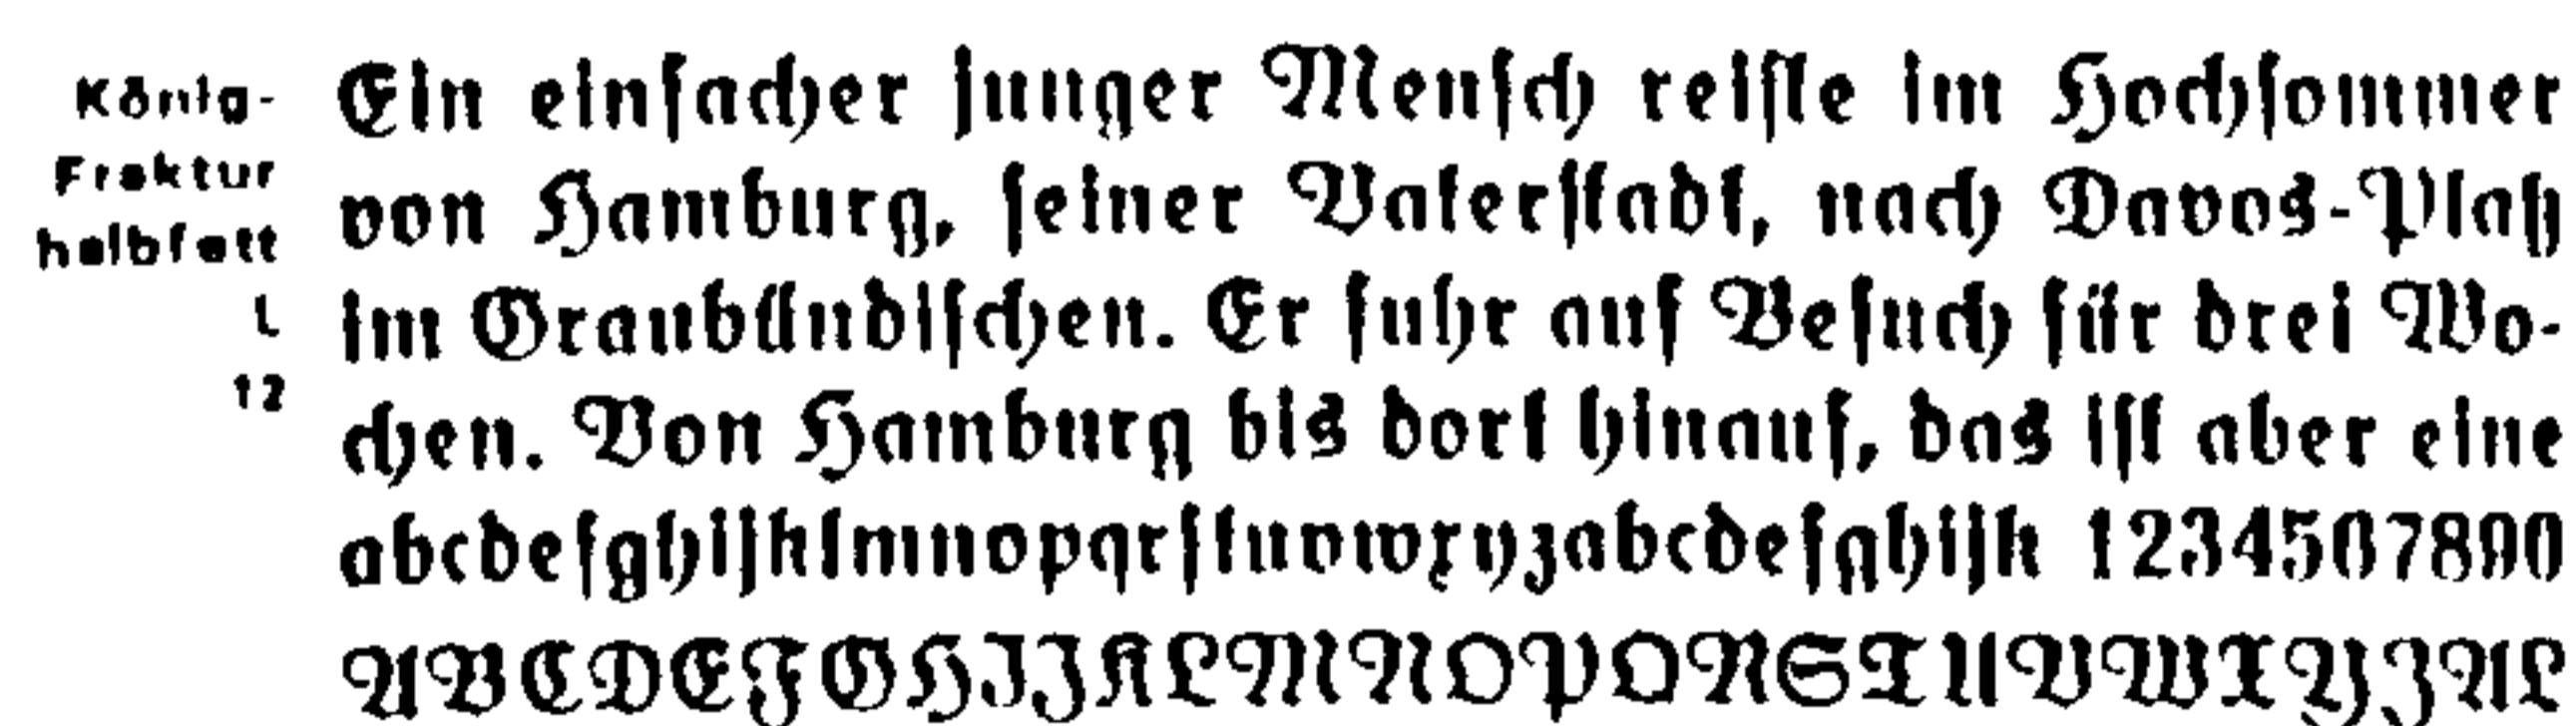 König-
Fraktur
halbfett
L
12
Ein einfacher junger Mensch reiste im Hochsommer
von Hamburg, seiner Vaterstadt, nach Davos-Platz
im Graubündischen. Er fuhr auf Besuch für drei Wo-
chen. Von Hamburg bis dort hinauf, das ist aber eine
abcdefghijklmnopqrstuvwxyzabcdefghijk 1234567890
ABCDEFGHIJKLMNOPQRSTUVWXYZÄL